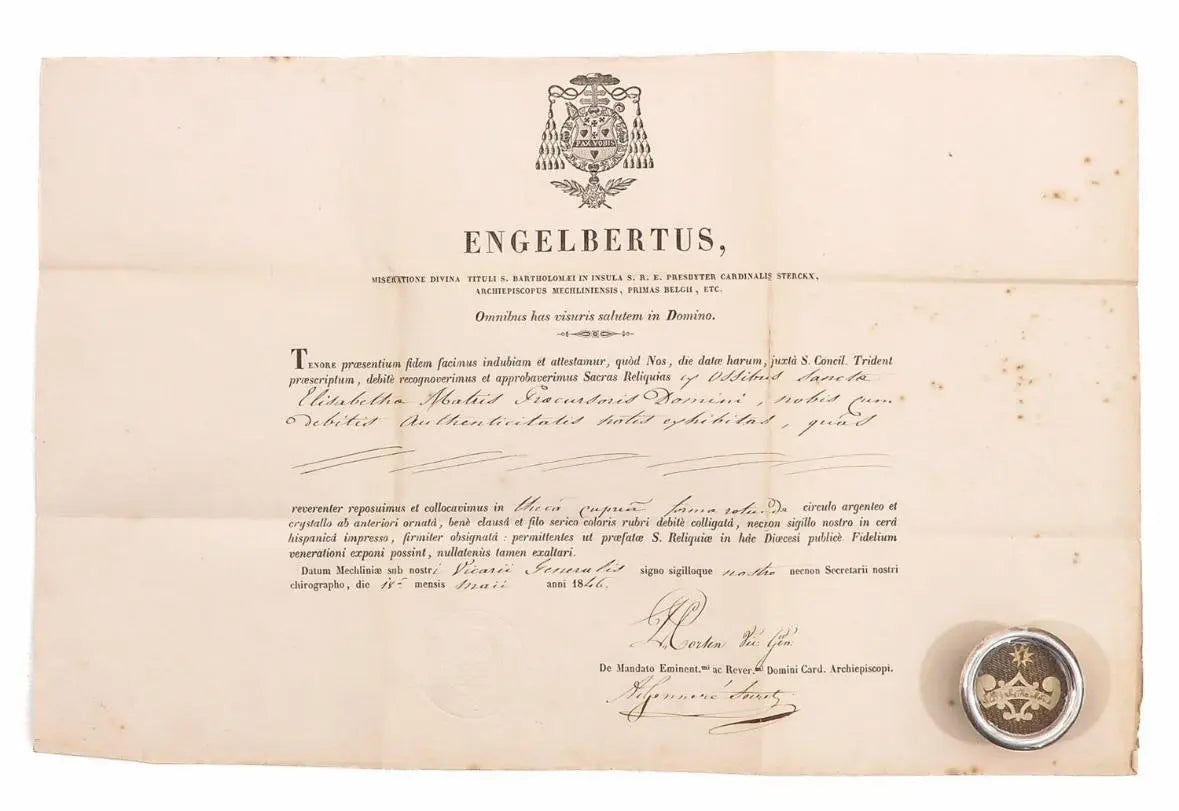 PAX VOBIS
ENGELBERTUS,
MISERATIONE DIVINA TITULI S. BARTHOLOMÆI IN INSULA S. R. E. PRESBYTER CARDINALIS STERCKX,
ARCHIEPISCOPUS MECHLINIENSIS, PRIMAS BELGII, ETC.
Omnibus has visuris salutem in Domino.
TENORE præsentium fidem facimus indubiam et attestamur, quòd Nos, die datæ harum, juxtà S. Concil. Trident
præscriptum, debitè recognoverimus et approbaverimus Sacras Reliquias ex Ossibus Sanctæ
Elisabetha Matris Præcursoris Domini, nobis cum
debitis Authenticitatis notis exhibitas, quas
reverenter reposuimus et collocavimus in thecâ cupreâ forma rotunda circulo argenteo et
crystallo ab anteriori ornatâ, benè clausâ et filo serico coloris rubri debitè colligatâ, necnon sigillo nostro in cerâ
hispanicâ impresso, firmiter obsignatâ : permittentes ut præfatæ S. Reliquiæ in hâc Diœcesi publicè Fidelium
venerationi exponi possint, nullatenùs tamen exaltari.
Datum Mechliniæ sub nostri Vicarii Generalis signo sigilloque nostro necnon Secretarii nostri
chirographo, die mensis Maii anni 1846.
Vic. Gen.
De Mandato Eminent.mi ac Rever.mi Domini Card. Archiepiscopi.